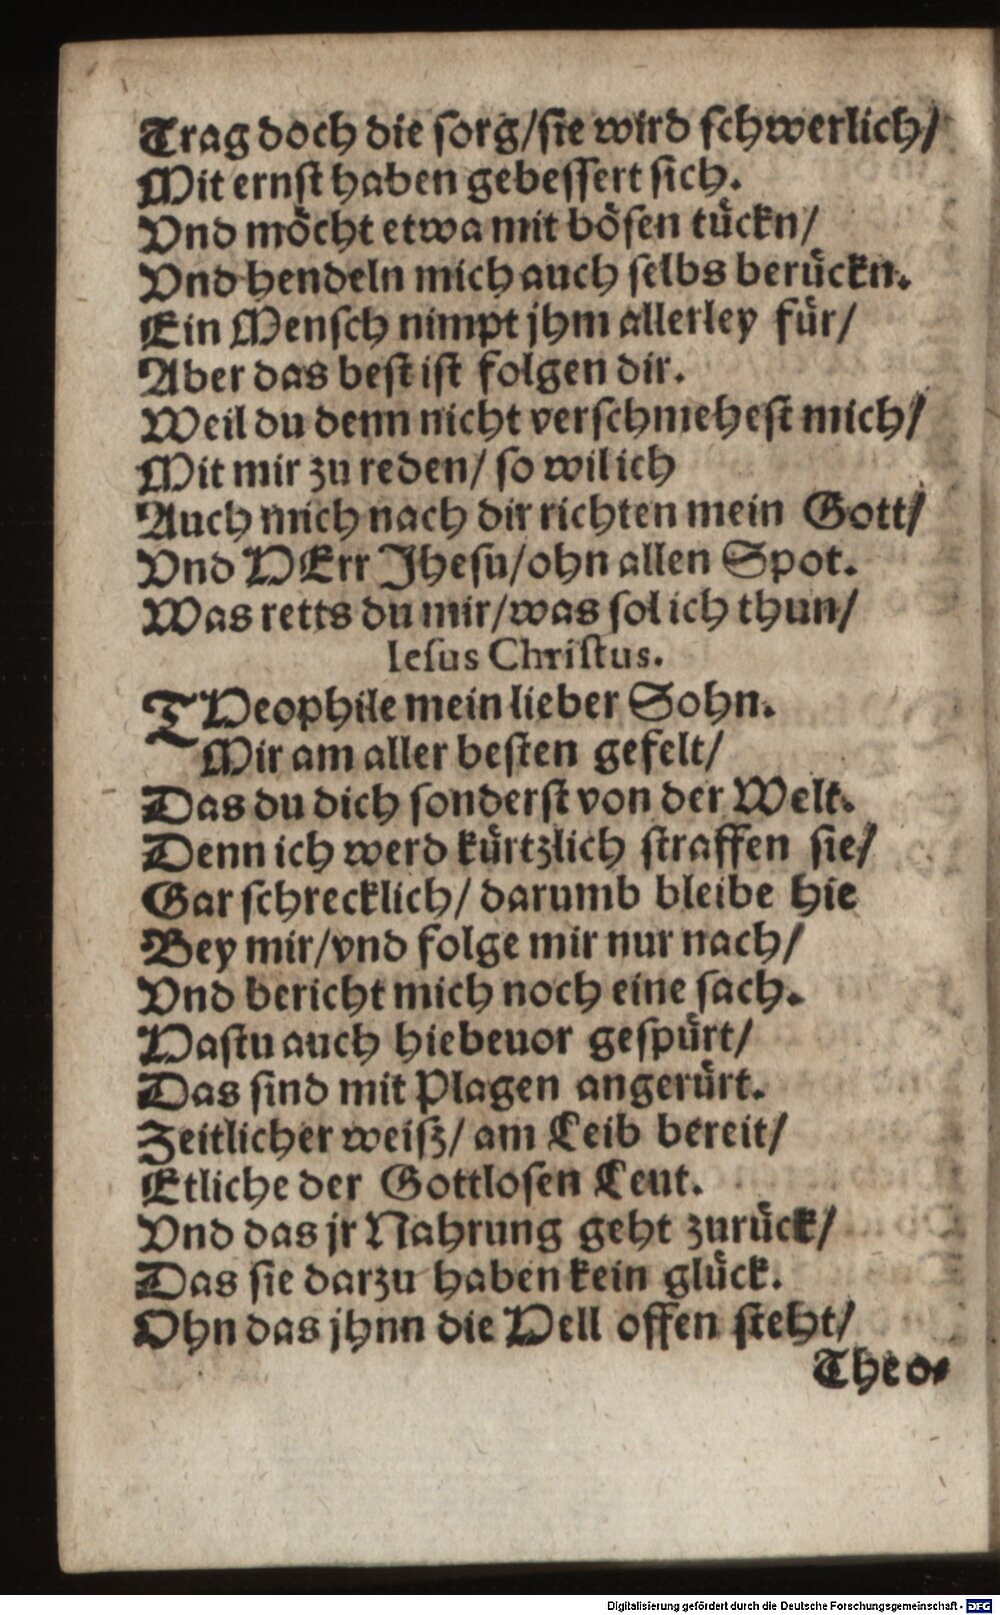 Trag doch die sorg/sie wird schwerlich/
Mit ernst haben gebessert sich.
Vnd möcht etwa mit bösen tückn/
Vnd hendeln mich auch selbs berückn.
Ein Mensch nimpt jhm allerley für/
Aber das best ist folgen dir.
Weil du denn nicht verschmehest mich/
Mit mir zu reden/ so wil ich
Auch mich nach dir richten mein Gott/
Vnd HErr Jhesu/ohn allen Spot.
Was retts du mir/was sol ich thun/
Iesus Christus.
THeophile mein lieber Sohn.
Mir am aller besten gefelt/
Das du dich sonderst von der Welt.
Denn ich werd kürtzlich straffen sie/
Gar schrecklich/ darumb bleibe hie
Bey mir/vnd folge mir nur nach/
Vnd bericht mich noch eine sach.
Hastu auch hiebeuor gespürt/
Das sind mit Plagen angerürt.
Zeitlicher weisz/ am Leib bereit/
Etliche der Gottlosen Leut.
Vnd das jr Nahrung geht zurück/
Das sie darzu haben kein glück.
Ohn das jhnn die Hell offen steht/
Theo-
Digitalisierung gefördert durch die Deutsche Forschungsgemeinschaft - DFG